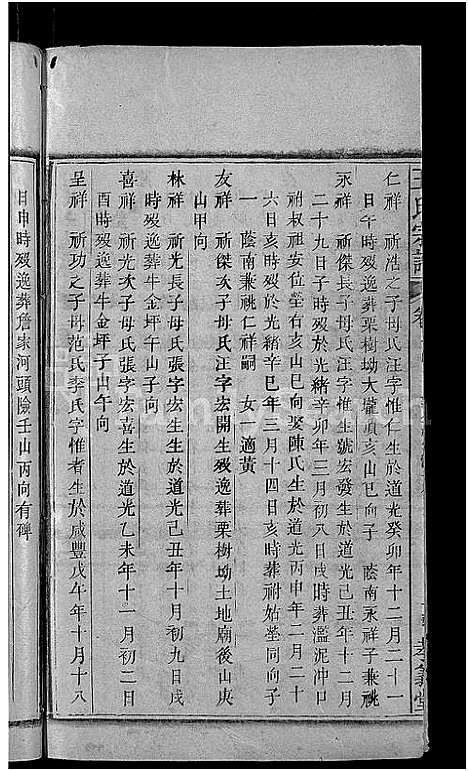 仁祥 祈浩之子母氏汪字惟仁生於道光癸卯年十二月二十一
日午時歿逸葬栗樹坳大壠頑亥山巳向子 蔭南永祥子兼祧
永祥 祈傑長子母氏汪字惟生號宏發生於道光己丑年十二月
二十九日子時歿於光緒辛卯年三月初八日戌時葬濫泥冲口
祔叔祖妾位塋右亥山巳向娶陳氏生於道光丙申年二月二十
六日亥時歿於光緒辛巳年三月十四日亥時葬祔姑塋同向子
一 蔭南兼祧仁祥嗣 女一適黃
友祥 祈傑次子母氏汪字宏開生歿逸葬栗樹坳土地廟後山庚
山甲向
林祥 祈光長子母氏張字宏生生於道光己丑年十月初九日戌
時歿逸葬牛金坪午山子向
喜祥 祈光次子母氏張字宏喜生於道光乙未年十一月初二日
酉時歿逸葬牛金坪子山午向
呈祥 祈功之子母范氏李氏字惟者生於咸豐戊午年十月十八
日申時歿逸葬詹家河頭險壬山丙向有碑
王氏宗譜
卷
孝義堂